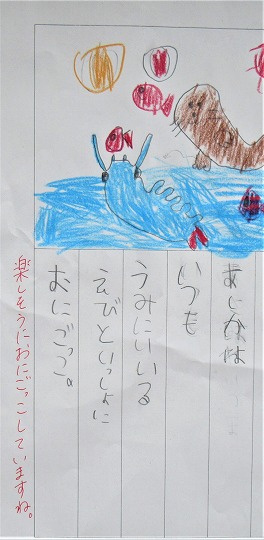 あしかは
いつも
うみにいる
えびといっしょに
おにごっこ。
楽しそうに、おにごっこしていますね。